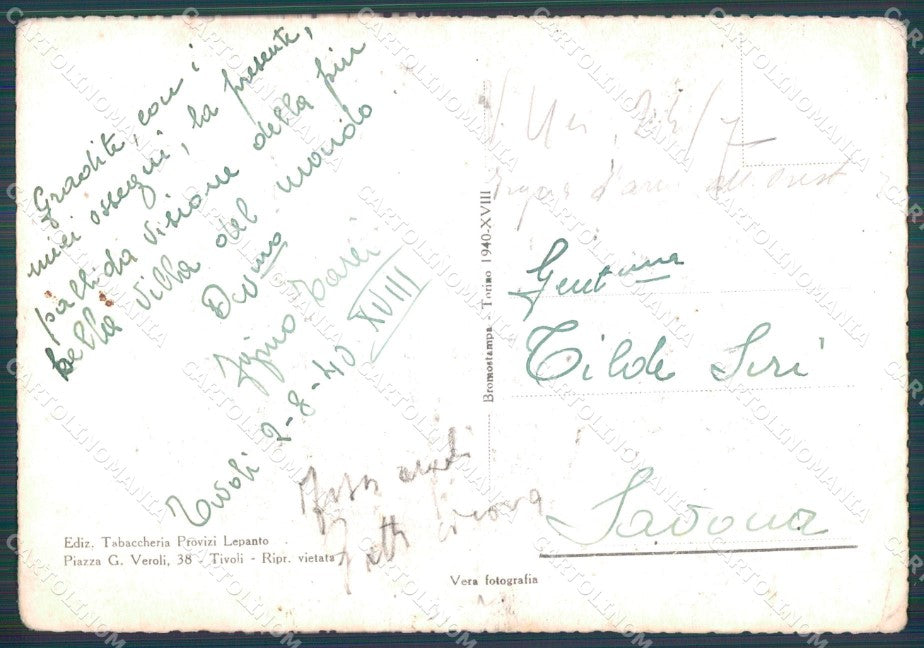 Gradite, con i
miei ossequi, la presente,
pallida visione della più
bella Villa del mondo
Dev.mo
Igino
Tivoli 2-8-40-XVIII
Ediz. Tabaccheria Provizi Lepanto
Piazza G. Veroli, 38 - Tivoli - Ripr. vietata
Vera fotografia
Bromostampa - Torino 1940-XVIII
Gent.ma
Tilde Siri
Savona
CARTOLINOMANIA